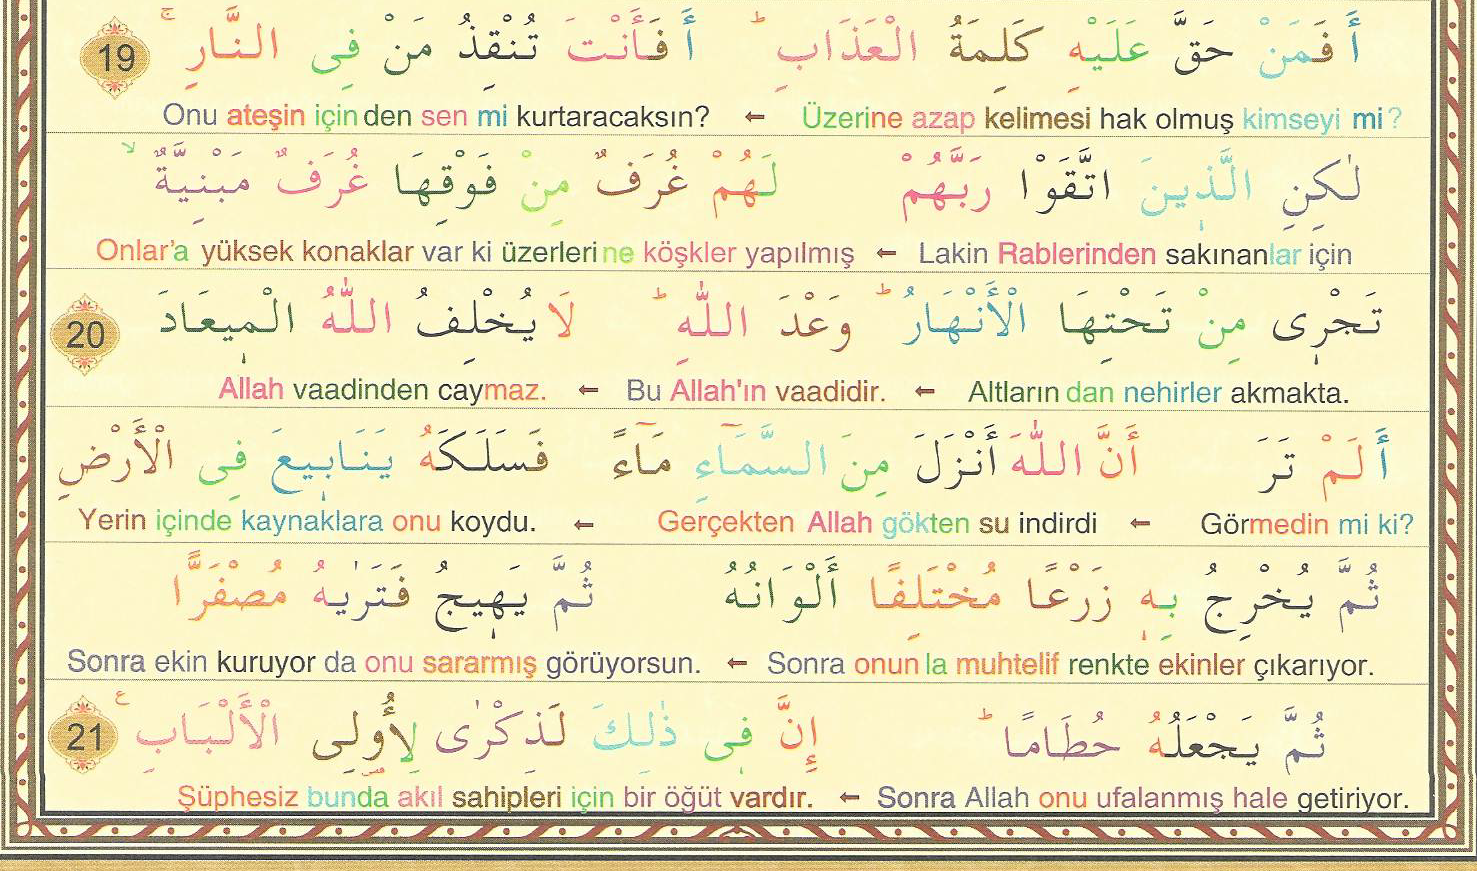 أَفَمَنْ حَقَّ عَلَيْهِ كَلِمَةُ الْعَذَابِ ؕ أَفَأَنْتَ تُنْقِذُ مَنْ فِي النَّارِ ۚ 19
Üzerine azap kelimesi hak olmuş kimseyi mi? ← Onu ateşin içinden sen mi kurtaracaksın?
لٰكِنِ الَّذِينَ اتَّقَوْا رَبَّهُمْ لَهُمْ غُرَفٌ مِنْ فَوْقِهَا غُرَفٌ مَبْنِيَّةٌ ۙ
Lakin Rablerinden sakınanlar için ← Onlar'a yüksek konaklar var ki üzerlerine köşkler yapılmış
تَجْرِى مِنْ تَحْتِهَا الْأَنْهَارُ ؕ وَعْدَ اللّٰهِ ؕ لَا يُخْلِفُ اللّٰهُ الْمِيعَادَ 20
Altlarından nehirler akmakta. ← Bu Allah'ın vaadidir. ← Allah vaadinden caymaz.
أَلَمْ تَرَ أَنَّ اللّٰهَ أَنْزَلَ مِنَ السَّمَٓاءِ مَٓاءً فَسَلَكَهُ يَنَابِيعَ فِي الْأَرْضِ
Görmedin mi ki? ← Gerçekten Allah gökten su indirdi ← Yerin içinde kaynaklara onu koydu.
ثُمَّ يُخْرِجُ بِهِ زَرْعًا مُخْتَلِفًا أَلْوَانُهُ ثُمَّ يَهِيجُ فَتَرٰيهُ مُصْفَرًّا
Sonra onunla muhtelif renkte ekinler çıkarıyor. ← Sonra ekin kuruyor da onu sararmış görüyorsun.
ثُمَّ يَجْعَلُهُ حُطَامًا ؕ إِنَّ فِي ذٰلِكَ لَذِكْرٰى لِأُولِى الْأَلْبَابِ ع 21
Sonra Allah onu ufalanmış hale getiriyor. ← Şüphesiz bunda akıl sahipleri için bir öğüt vardır.